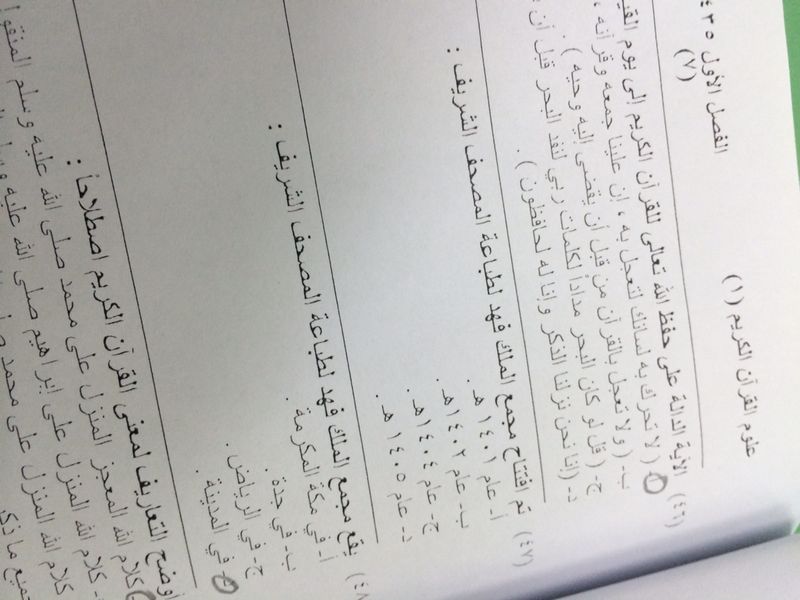 علوم القرآن الكريم (١)
الفصل الأول ٤٣٥
(٧)
(٤٦) الآية الدالة على حفظ الله تعالى للقرآن الكريم إلى يوم
( لا تحرك به لسانك لتعجل به ، إن علينا جمعه وقرآنه ،
ب- ( ولا تعجل بالقرآن من قبل أن يقضى إليه وحيه ) .
ج- ( قل لو كان البحر مداداً لكلمات ربي لنفد البحر قبل أن
د- (إنا نحن نزلنا الذكر وإنا له لحافظون ) .
(٤٧) تم افتتاح مجمع الملك فهد لطباعة المصحف الشريف :
أ- عام ١٤٠١ هـ .
ب- عام ١٤٠٢ هـ .
ج- عام ١٤٠٤ هـ .
د- عام ١٤٠٥ هـ .
(٤٨ يقع مجمع الملك فهد لطباعة المصحف الشريف :
أ- في مكة المكرمة .
ب- في جدة .
ج- في الرياض .
في المدينة .
أوضح التعاريف لمعنى القرآن الكريم اصطلاحاً :
كلام الله المعجز المنزل على محمد صلى الله عليه وسلم
- كلام الله المنزل على إبراهيم صلى الله عليه
كلام الله المنزل على محمد
جميع ما ذكر